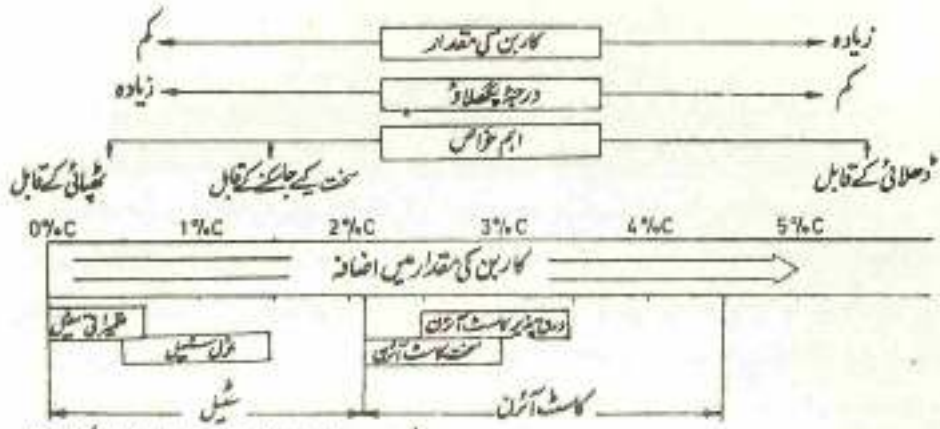 کم کاربن کی مقدار زیادہ
زیادہ درجۂ پگھلاؤ کم
اہم خواص
ٹھپائی کے قابل سخت کیے جا سکنے کے قابل ڈھلائی کے قابل
0%C 1%C 2%C 3%C 4%C 5%C
کاربن کی مقدار میں اضافہ
تعمیراتی سٹیل ورق پذیر کاسٹ آئرن
ٹول سٹیل سخت کاسٹ آئرن
سٹیل کاسٹ آئرن